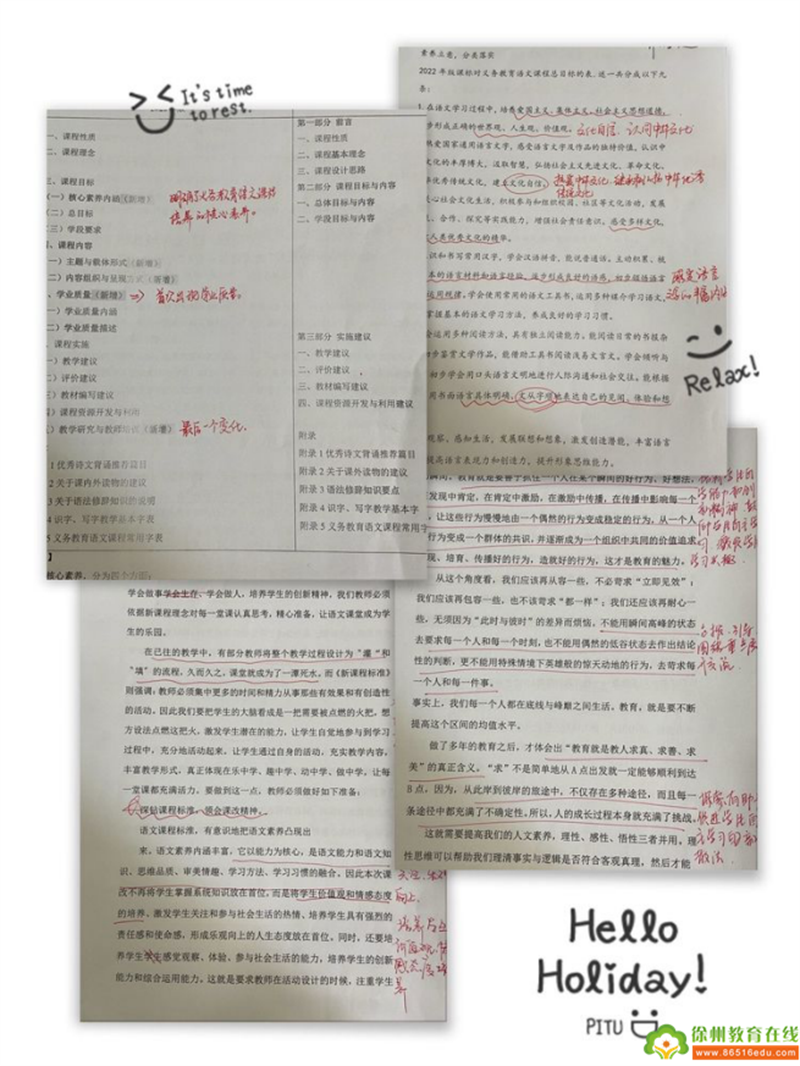 It's time
to rest.
一、课程性质
二、课程理念
三、课程目标
(一)核心素养内涵(新增)
(二)总目标
(三)学段要求
四、课程内容
(一)主题与载体形式(新增)
(二)内容组织与呈现方式(新增)
、学业质量(新增) 首次出现学业质量。
(一)学业质量内涵
(二)学业质量描述
课程实施
一)教学建议
二)评价建议
三)教材编写建议
四)课程资源开发与利用
五)教学研究与教师培训(新增) 最后一个变化.
1 优秀诗文背诵推荐篇目
2 关于课内外读物的建议
3 关于语法修辞知识的说明
4 识字、写字教学基本字表
5 义务教育语文课程常用字表
第一部分 前言
一、课程性质
二、课程基本理念
三、课程设计思路
第二部分 课程目标与内容
一、总体目标与内容
二、学段目标与内容
第三部分 实施建议
一、教学建议
二、评价建议
三、教材编写建议
四、课程资源开发与利用建议
附录
附录 1 优秀诗文背诵推荐篇目
附录 2 关于课外读物的建议
附录 3 语法修辞知识要点
附录 4 识字、写字教学基本字
附录 5 义务教育语文课程常用字
核心素养,分为四个方面:
素养立意,分类落实
2022 年版课标对义务教育语文课程总目标的表述一共分成以下九
条:
1. 在语文学习过程中,培养爱国主义、集体主义、社会主义思想道德,
步形成正确的世界观、人生观、价值观。 文化自信、认同中华文化
热爱国家通用语言文字,感受语言文字及作品的独特价值,认识中
文化的丰厚博大,汲取智慧,弘扬社会主义先进文化、革命文化、
华优秀传统文化,建立文化自信。
心社会文化生活,积极参与和组织校园、社区等文化活动,发展
、合作、探究等实践能力,增强社会责任意识。感受多样文化,
人类优秀文化的精华。
识和书写常用汉字,学会汉语拼音,能说普通话。主动积累、梳
本的语言材料和语言经验,逐步形成良好的语感,初步领悟语言
运用规律。学会使用常用的语文工具书,运用多种媒介学习语文,
掌握基本的语文学习方法,养成良好的学习习惯。
会运用多种阅读方法,具有独立阅读能力。能阅读日常的书报杂
初步鉴赏文学作品,能借助工具书阅读浅易文言文。学会倾听与
初步学会用口头语言文明地进行人际沟通和社会交往。能根据
用书面语言具体明确、文从字顺地表达自己的见闻、体验和想
观察、感知生活,发展联想和想象,激发创造潜能,丰富语言
提高语言表现力和创造力,提升形象思维能力。
Relax!
瞬间。教育就是要善于抓住一个人在某个瞬间的好行为、好想法,
发现中肯定,在肯定中激励,在激励中传播,在传播中影响每一个
,让这些行为慢慢地由一个偶然的行为变成稳定的行为,从一个人
行为变成一个群体的共识,并逐渐成为一个组织中共同的价值追求
现、培育、传播好的行为,造就好的行为,这才是教育的魅力。
从这个角度看,我们应该再从容一些,不必苛求“立即见效”;
我们应该再包容一些,也不该苛求“都一样”;我们还应该再耐心一
些,无须因为“此时与彼时”的差异而烦恼,不能用瞬间高峰的状态
去要求每一个人和每一个时刻,也不能用偶然的低谷状态去作出结论
性的判断,更不能用特殊情境下英雄般的惊天动地的行为,去苛求每
一个人和每一件事。
事实上,我们每一个人都在底线与峰巅之间生活。教育,就是要不断
提高这个区间的均值水平。
做了多年的教育之后,才体会出“教育就是教人求真、求善、求
美”的真正含义。“求”不是简单地从 A 点出发就一定能够顺利到达
B 点,因为,从此岸到彼岸的旅途中,不仅存在多种途径,而且每一
条途径中都充满了不确定性。所以,人的成长过程本身就充满了挑战。
这就需要提高我们的人文素养,理性、感性、悟性三者并用。理
性思维可以帮助我们理清事实与逻辑是否符合客观真理。然后才能
学会做事学会生存、学会做人,培养学生的创新精神,我们教师必须
依据新课程理念对每一堂课认真思考,精心准备,让语文课堂成为学
生的乐园。
在已往的教学中,有部分教师将整个教学过程设计为“灌”和
“填”的流程,久而久之,课堂就成为了一潭死水。而《新课程标准》
则强调:教师必须集中更多的时间和精力从事那些有效果和有创造性
的活动,因此我们要把学生的大脑看成是一把需要被点燃的火把,想
方设法点燃这把火,激发学生潜在的能力,让学生自觉地参与到学习
过程中,充分地活动起来,让学生通过自身的活动,充实教学内容,
丰富教学形式,真正体现在乐中学、趣中学、动中学、做中学,让每
一堂课都充满活力。要做到这一点,教师必须做好如下准备:
探钻课程标准,领会课改精神。
语文课程标准,有意识地把语文素养凸现出
来,语文素养内涵丰富,它以能力为核心,是语文能力和语文知
识、思维品质、审美情趣、学习方法、学习习惯的融合。因此本次课
改不再将学生掌握系统知识放在首位,而是将学生价值观和情感态度
的培养、激发学生关注和参与社会生活的热情、培养学生具有强烈的
责任感和使命感,形成乐观向上的人生态度放在首位。同时,还要培
养学生感觉观察、体验、参与社会生活的能力,培养学生的创新
能力和综合运用能力。这就是要求教师在活动设计的时候,注重学生
Hello
Holiday!
PITU
徐州教育在线
www.86516edu.com